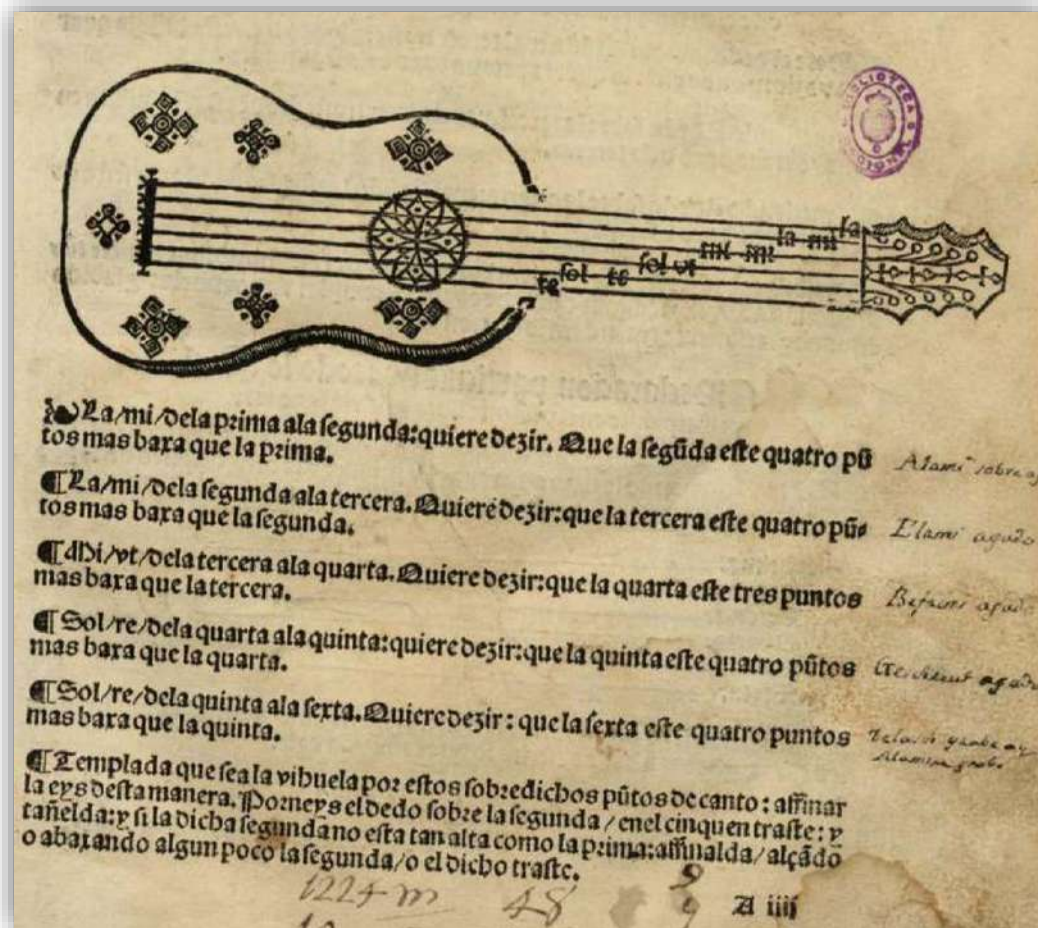 BIBLIOTECA
la mi la
mi mi
sol vt
re sol re
La/mi/dela prima ala segunda: quiere dezir. Que la segūda este quatro pū
tos mas baxa que la prima.
¶La/mi/dela segunda ala tercera. Quiere dezir: que la tercera este quatro pū-
tos mas baxa que la segunda.
¶Mi/vt/dela tercera ala quarta. Quiere dezir: que la quarta este tres puntos
mas baxa que la tercera.
¶Sol/re/dela quarta ala quinta: quiere dezir: que la quinta este quatro pūtos
mas baxa que la quarta.
¶Sol/re/dela quinta ala sexta. Quiere dezir: que la sexta este quatro puntos
mas baxa que la quinta.
¶Templada que sea la vihuela por estos sobredichos pūtos de canto: affinar
la eys desta manera. Porneys el dedo sobre la segunda/enel cinquen traste: y
tañelda: y si la dicha segunda no esta tan alta como la prima: affinalda/alçādo
o abaxando algun poco la segunda/o el dicho traste.
Alami sobre
Elami agudo
Befami agudo
agudo
1224 m 48 9
A iiij